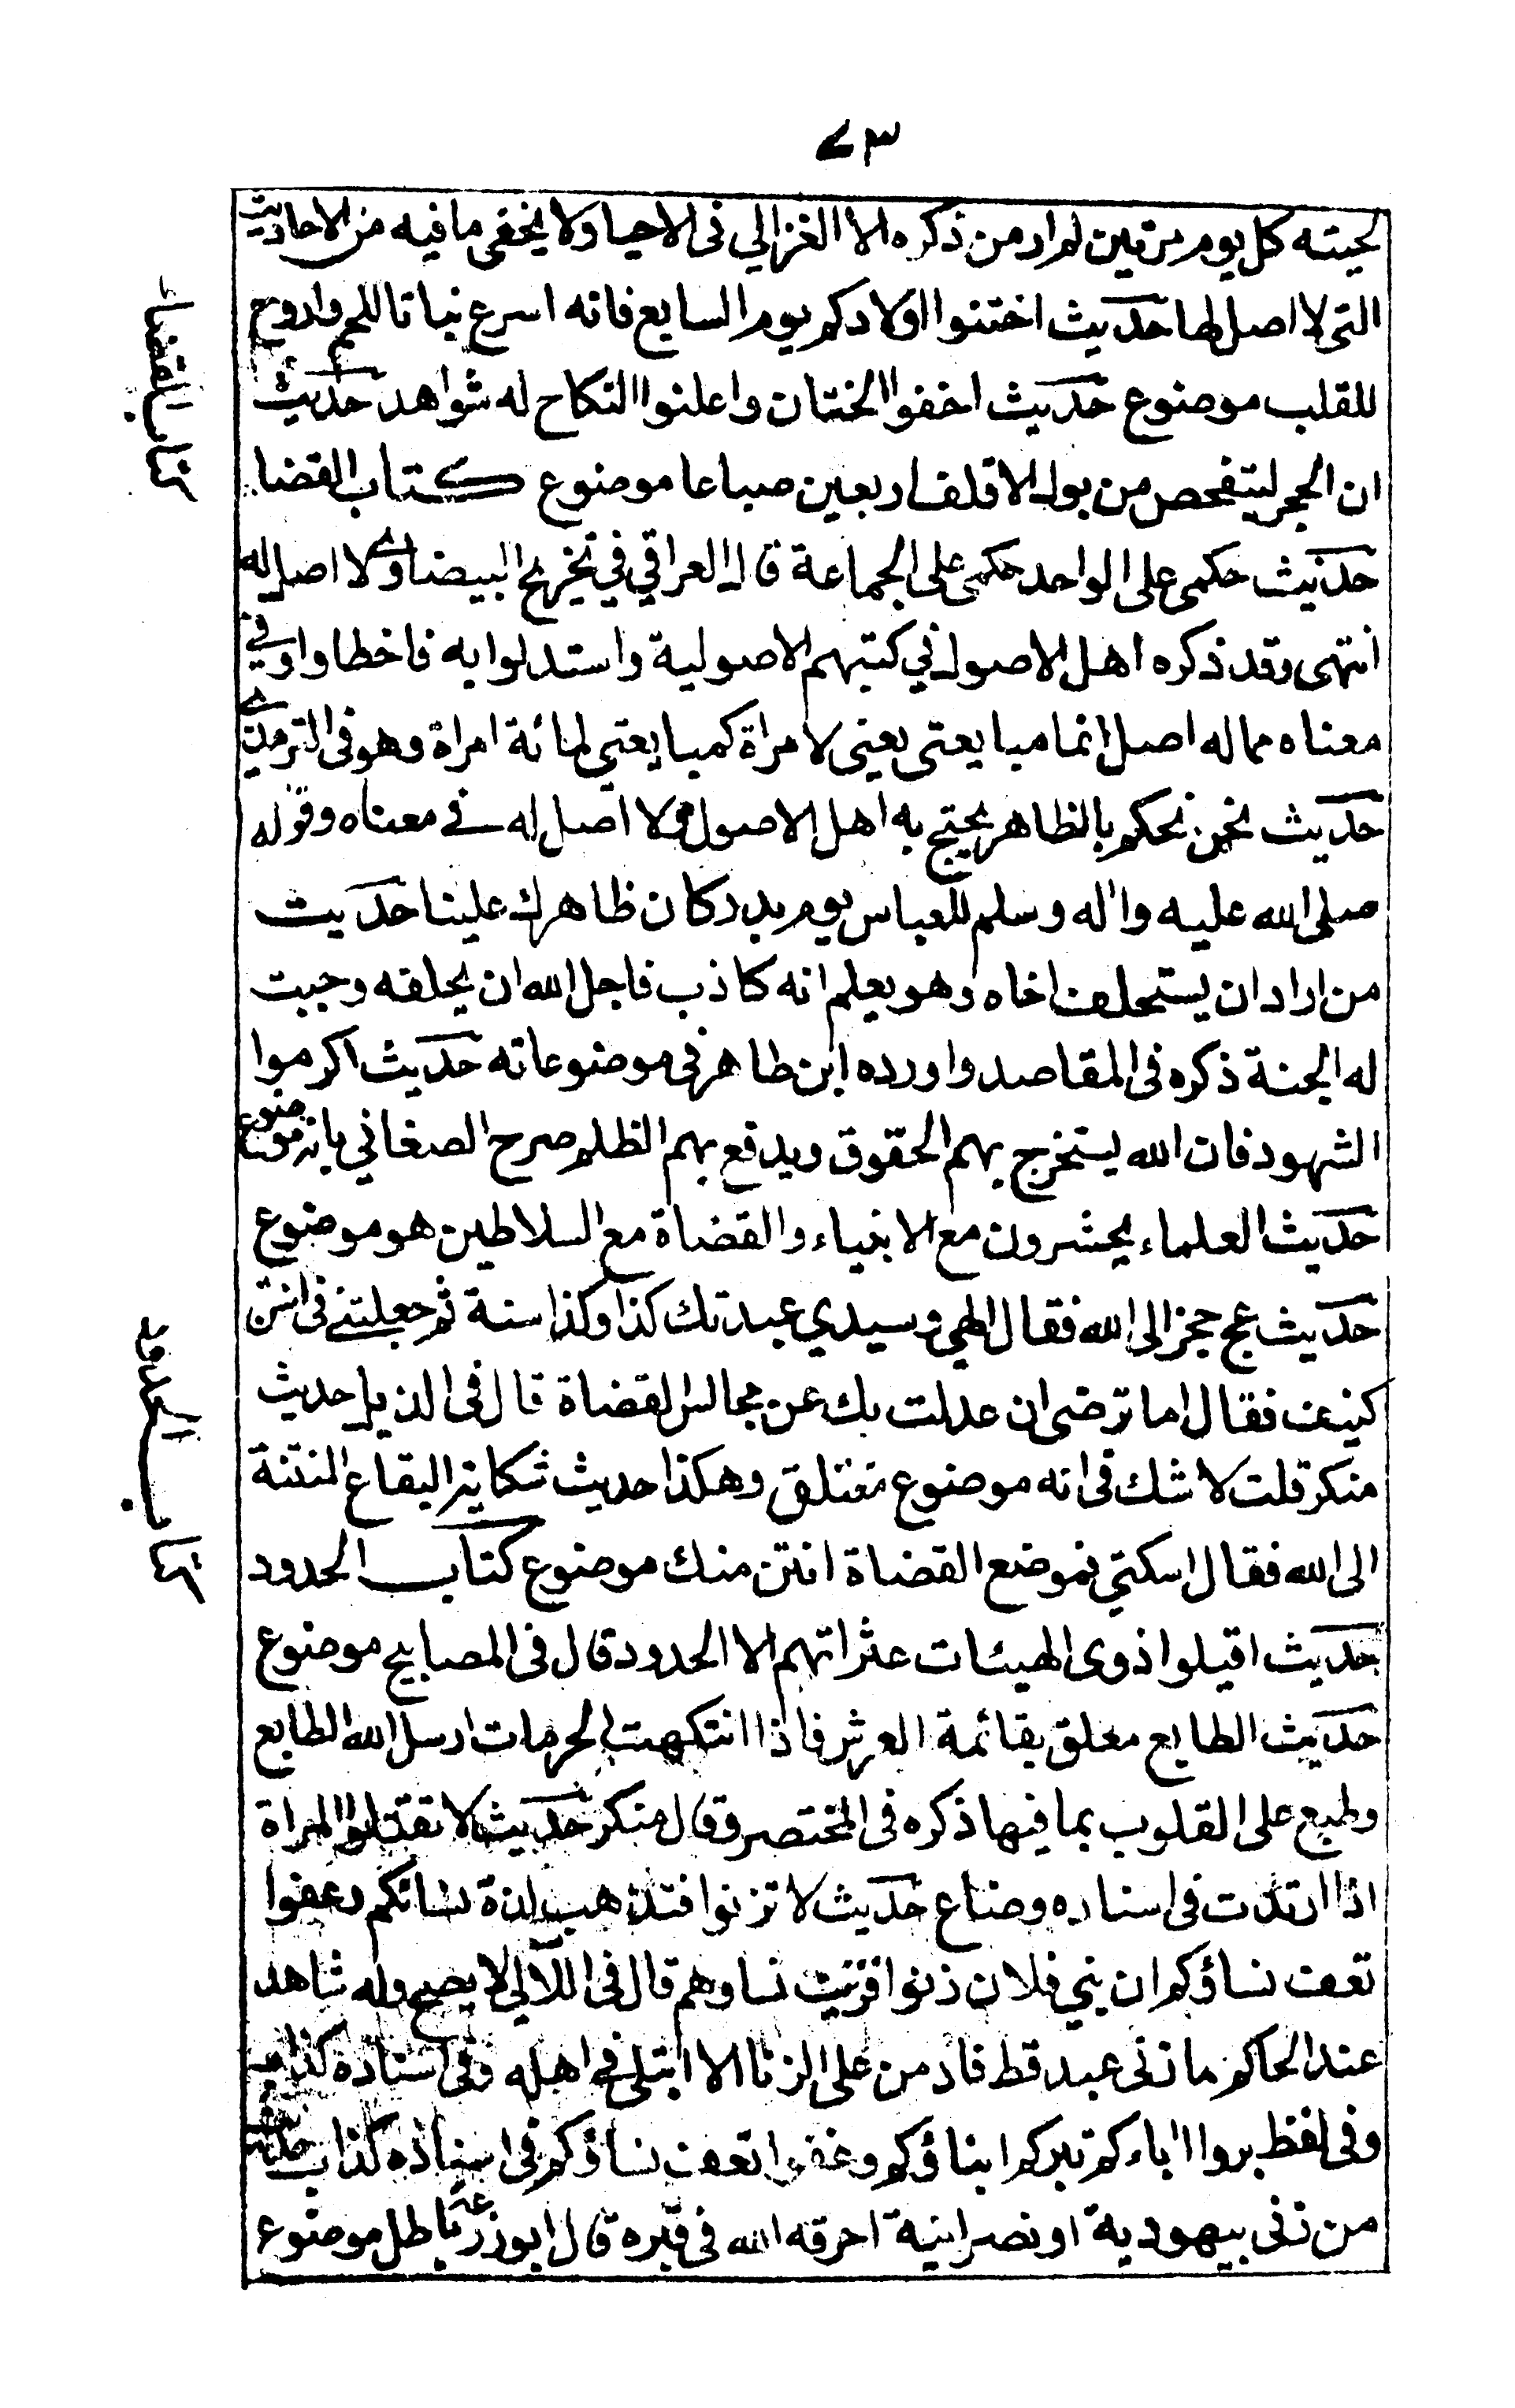 ٧٣
لحيته كل يوم مرتين لم ار من ذكره الا الغزالي فى الاحيا ولا يخفى ما فيه من الاحاديث
التى لا اصل لها حديث اختنوا اولادكم يوم السابع فانه اسرع نباتا للحم واروح
للقلب موضوع حديث اخفوا الختان واعلنوا النكاح له شواهد حديث
ان الحجر ليتفحص من بول الاقلف اربعين صباعا موضوع كتاب القضا
كتاب القضاء
حديث حكمى على الواحد حكمى على الجماعة قال العراقي في تخريج البيضاوي لا اصل له
انتهى وقد ذكره اهل الاصول في كتبهم الاصولية واستدلوا به فاخطاوا وفي
معناه مما له اصل انما مبايعتى يعنى لامراة كمبايعتي لمائة امراة وهو فى الترمذي
حديث نحن نحكم بالظاهر يحتج به اهل الاصول ولا اصل له في معناه وقوله
صلى الله عليه واله وسلم للعباس يوم بدر كان ظاهرك علينا حديث
من اراد ان يستحلف اخاه وهو يعلم انه كاذب فاجل الله ان يحلفه وجبت
له الجنة ذكره فى المقاصد واورده ابن طاهر فى موضوعاته حديث اكرموا
الشهود فان الله يستخرج بهم الحقوق ويدفع بهم الظلم صرح الصغاني بانه موضوع
حديث العلماء يحشرون مع الانبياء والقضاة مع السلاطين هو موضوع
حديث عج حجر الى الله فقال الهي وسيدي عبدتك كذا وكذا سنة ثم جعلتنى فى انتن
كنيف فقال اما ترضى ان عدلت بك عن مجالس القضاة قال فى الذيل حديث
منكر قلت لا شك فى انه موضوع مختلق وهكذا حديث شكاية البقاع المنتنة
الى الله فقال اسكتي فموضع القضاة انتن منك موضوع كتاب الحدود
كتاب الحدود
حديث اقيلوا ذوى الهيئات عثراتهم الا الحدود قال فى المصابيح موضوع
حديث الطابع معلق بقائمة العرش فاذا انتكهت الحرمات ارسل الله الطابع
وطبع على القلوب بما فيها ذكره فى المختصر وقال منكر حديث لا تقتلوا المراة
اذا ارتدت فى اسناده وضاع حديث لا تزنوا فتذهب لذة نسائكم وعفوا
تعف نساؤكم ان بني فلان زنوا فزنت نساوهم قال فى اللآلي لا يصح وله شاهد
عند الحاكم ما زنى عبد قط فادمن على الزنا الا ابتلى فى اهله وفى اسناده كذاب
وفى لفظ بروا اباءكم تبركم ابناؤكم وعفوا تعف نساؤكم فى اسناده كذاب حديث
من زنى بيهودية او نصرانية احرقه الله فى قبره قال ابو زرعة باطل موضوع